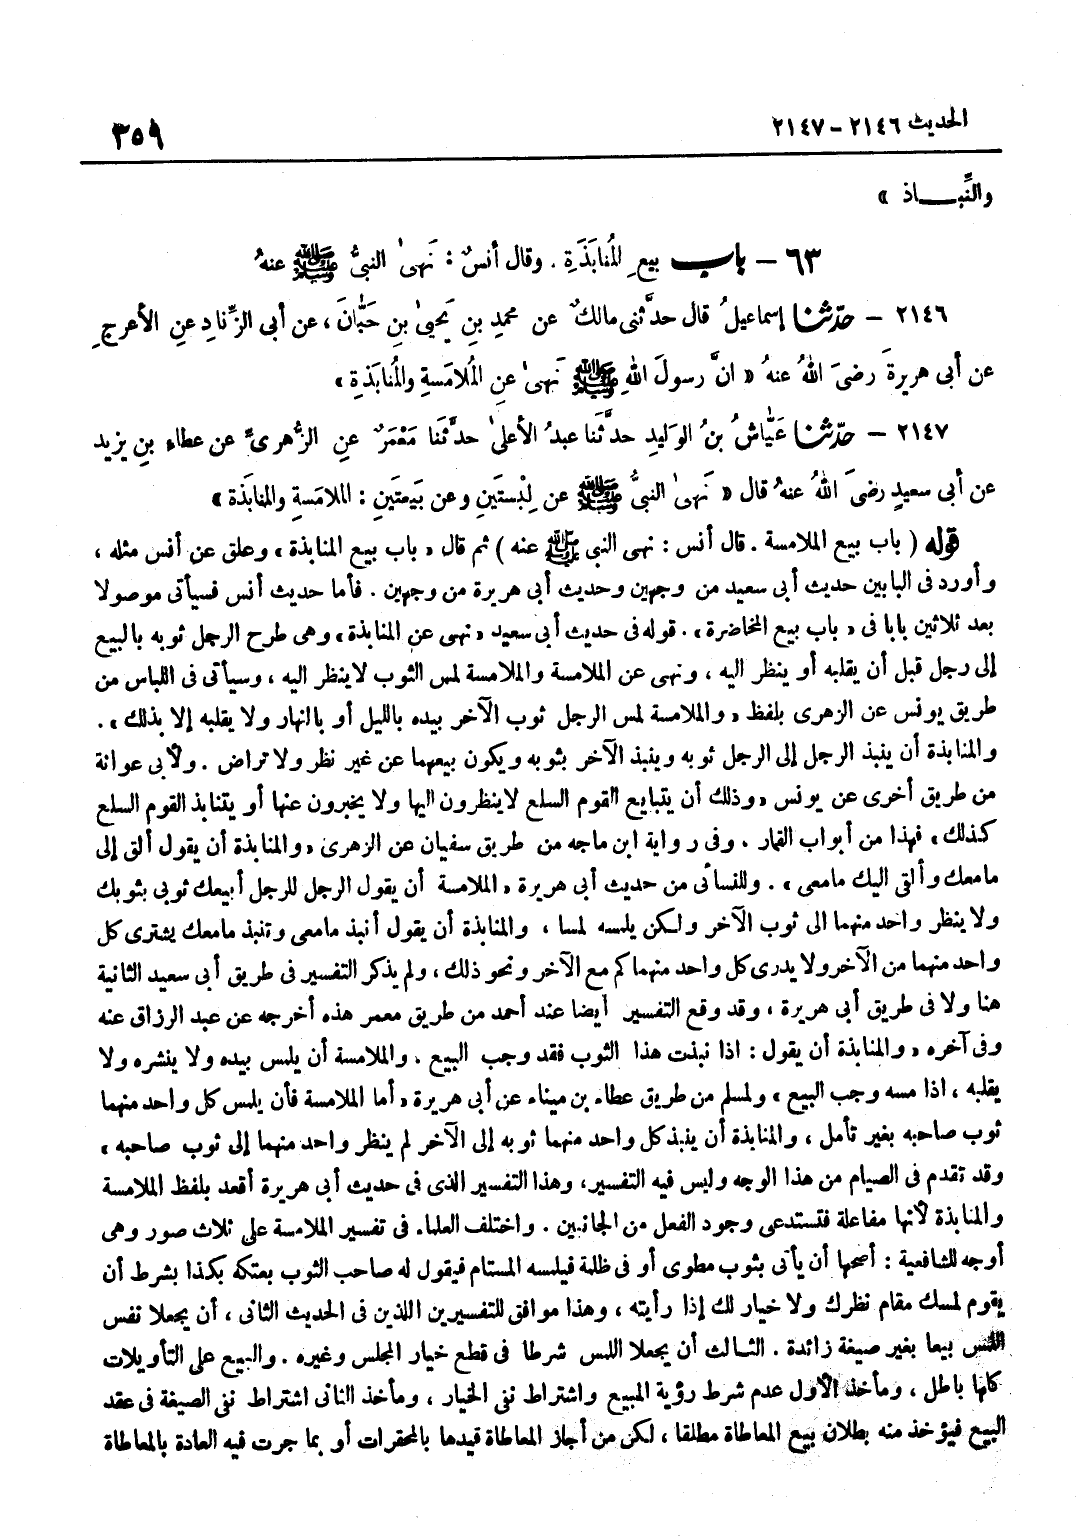 الحديث ٢١٤٦ - ٢١٤٧
٣٥٩
والنِّبـاذ »
٦٣ - باب بيعِ المُنابَذَةِ . وقال أنسٌ : نَهىٰ النبىُّ ﷺ عنهُ
٢١٤٦ - حدّثنا إسماعيلُ قال حدَّثنى مالكٌ عن محمدِ بنِ يَحيىٰ بنِ حَبَّانَ ، عن أبى الزِّنادِ عنِ الأعرجِ
عن أبى هريرةَ رضىَ اللهُ عنهُ « انَّ رسولَ اللهِ ﷺ نَهىٰ عنِ المُلامَسةِ والمُنابَذةِ »
٢١٤٧ - حدّثنا عَيَّاشُ بنُ الوَليدِ حدَّثَنا عبدُ الأعلىٰ حدَّثَنا مَعْمَرٌ عنِ الزُّهرىِّ عن عطاءِ بنِ يزيد
عن أبى سعيدٍ رضىَ اللهُ عنهُ قال « نَهىٰ النبىُّ ﷺ عن لِبْستَينِ وعن بَيعتَينِ : الملامَسةِ والمنابَذة »
قوله ( باب بيع الملامسة . قال أنس : نهى النبى ﷺ عنه ) ثم قال « باب بيع المنابذة » وعلق عن أنس مثله ،
وأورد فى البابين حديث أبى سعيد من وجهين وحديث أبى هريرة من وجهين . فأما حديث أنس فسيأتى موصولا
بعد ثلاثين بابا فى « باب بيع المخاضرة » . قوله فى حديث أبى سعيد « نهى عن المنابذة » وهى طرح الرجل ثوبه بالبيع
إلى رجل قبل أن يقلبه أو ينظر اليه ، ونهى عن الملامسة والملامسة لمس الثوب لاينظر اليه ، وسيأتى فى اللباس من
طريق يونس عن الزهرى بلفظ « والملامسة لمس الرجل ثوب الآخر بيده بالليل أو بالنهار ولا يقلبه إلا بذلك » .
والمنابذة أن ينبذ الرجل إلى الرجل ثوبه وينبذ الآخر بثوبه ويكون بيعهما عن غير نظر ولا تراض . ولأبى عوانة
من طريق أخرى عن يونس « وذلك أن يتبايع القوم السلع لاينظرون اليها ولا يخبرون عنها أو يتنابذ القوم السلع
كذلك » فهذا من أبواب القمار . وفى رواية ابن ماجه من طريق سفيان عن الزهرى « والمنابذة أن يقول ألق إلى
مامعك وألقى اليك مامعى » . وللنسائى من حديث أبى هريرة « الملامسة أن يقول الرجل للرجل أبيعك ثوبى بثوبك
ولا ينظر واحد منهما الى ثوب الآخر ولكن يلمسه لمسا ، والمنابذة أن يقول أنبذ مامعى وتنبذ مامعك يشترى كل
واحد منهما من الآخر ولا يدرى كل واحد منهما كم مع الآخر ونحو ذلك ، ولم يذكر التفسير فى طريق أبى سعيد الثانية
هنا ولا فى طريق أبى هريرة ، وقد وقع التفسير أيضا عند أحمد من طريق معمر هذه أخرجه عن عبد الرزاق عنه
وفى آخره « والمنابذة أن يقول : اذا نبذت هذا الثوب فقد وجب البيع . والملامسة أن يلمس بيده ولا ينشره ولا
يقلبه ، اذا مسه وجب البيع » ولمسلم من طريق عطاء بن ميناء عن أبى هريرة « أما الملامسة فأن يلمس كل واحد منهما
ثوب صاحبه بغير تأمل ، والمنابذة أن ينبذ كل واحد منهما ثوبه إلى الآخر لم ينظر واحد منهما إلى ثوب صاحبه »
وقد تقدم فى الصيام من هذا الوجه وليس فيه التفسير، وهذا التفسير الذى فى حديث أبى هريرة أقعد بلفظ الملامسة
والمنابذة لأنها مفاعلة فتستدعى وجود الفعل من الجانبين . واختلف العلماء فى تفسير الملامسة على ثلاث صور وهى
أوجه للشافعية : أصحها أن يأتى بثوب مطوى أو فى ظلمة فيلمسه المستام فيقول له صاحب الثوب بعتكه بكذا بشرط أن
يقوم لمسك مقام نظرك ولا خيار لك إذا رأيته ، وهذا موافق للتفسيرين اللذين فى الحديث الثانى ، أن يجعلا نفس
اللمس بيعا بغير صيغة زائدة . الثالث أن يجعلا اللمس شرطا فى قطع خيار المجلس وغيره . والبيع على التأويلات
كلها باطل ، ومأخذ الأول عدم شرط رؤية المبيع واشتراط نفى الخيار ، ومأخذ الثانى اشتراط نفى الصيغة فى عقد
البيع فيؤخذ منه بطلان بيع المعاطاة مطلقا ، لكن من أجاز المعاطاة قيدها بالمحقرات أو بما جرت فيه العادة بالمعاطاة